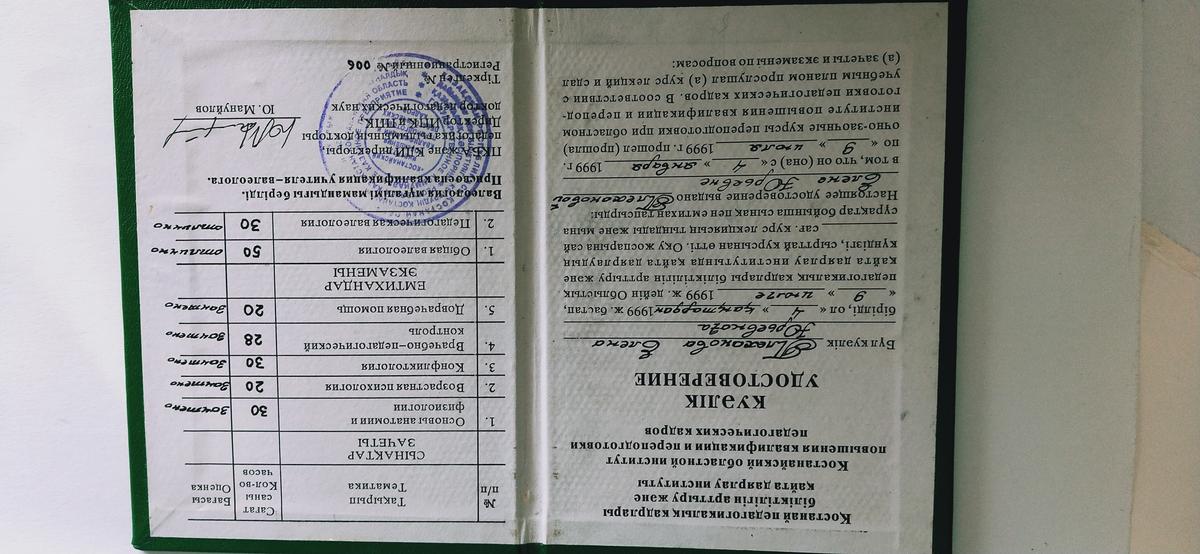 Қостанай педагогикалық кадрлары
біліктілігін арттыру және
қайта даярлау институты
Костанайский областной институт
повышения квалификации и переподготовки
педагогических кадров
КУӘЛІК
УДОСТОВЕРЕНИЕ
Бұл куәлік Плаханова Елена
Юрьевнаға
бірілді, ол « 4 » қаңтардан 1999 ж. бастап,
« 9 » июлге 1999 ж. дейін Облыстық
педагогикалық кадрлары біліктілігін арттыру және
қайта даярлау институтында қайта даярлаудың
күндізгі, сырттай курсынан өтті. Оқу жоспарына сай
сағ. курс лекциясын тыңдады және мына
сұрақтар бойынша сынақ пен емтихан тапсырды:
Настоящее удостоверение выдано Плахановой
Елене Юрьевне
в том, что он (она) с « 4 » января 1999 г.
по « 9 » июля 1999 г. прошел (прошла)
очно-заочные курсы переподготовки при областном
институте повышения квалификации и перепод-
готовки педагогических кадров. В соответствии с
учебным планом прослушал (а) курс лекций и сдал
(а) зачеты и экзамены по вопросам:
№ п/п Тақырып Тематика Сағат саны Кол-во часов Бағасы Оценка
СЫНАҚТАР
ЗАЧЕТЫ
1. Основы анатомии и физиологии 30 Зачтено
2. Возрастная психология 20 Зачтено
3. Конфликтология 30 Зачтено
4. Врачебно-педагогический контроль 28 Зачтено
5. Доврачебная помощь 20 Зачтено
ЕМТИХАНДАР
ЭКЗАМЕНЫ
1. Общая валеология 50 отлично
2. Педагогическая валеология 30 отлично
Валеология мұғалімі мамандығы берілді.
Присвоена квалификация учителя-валеолога.
ПКБАҚ және КДИ директоры,
педагогика ғылымының докторы
Директор ИПК и ППК
доктор педагогических наук Ю. Мануйлов
Тіркелген №
Регистрационный № 006